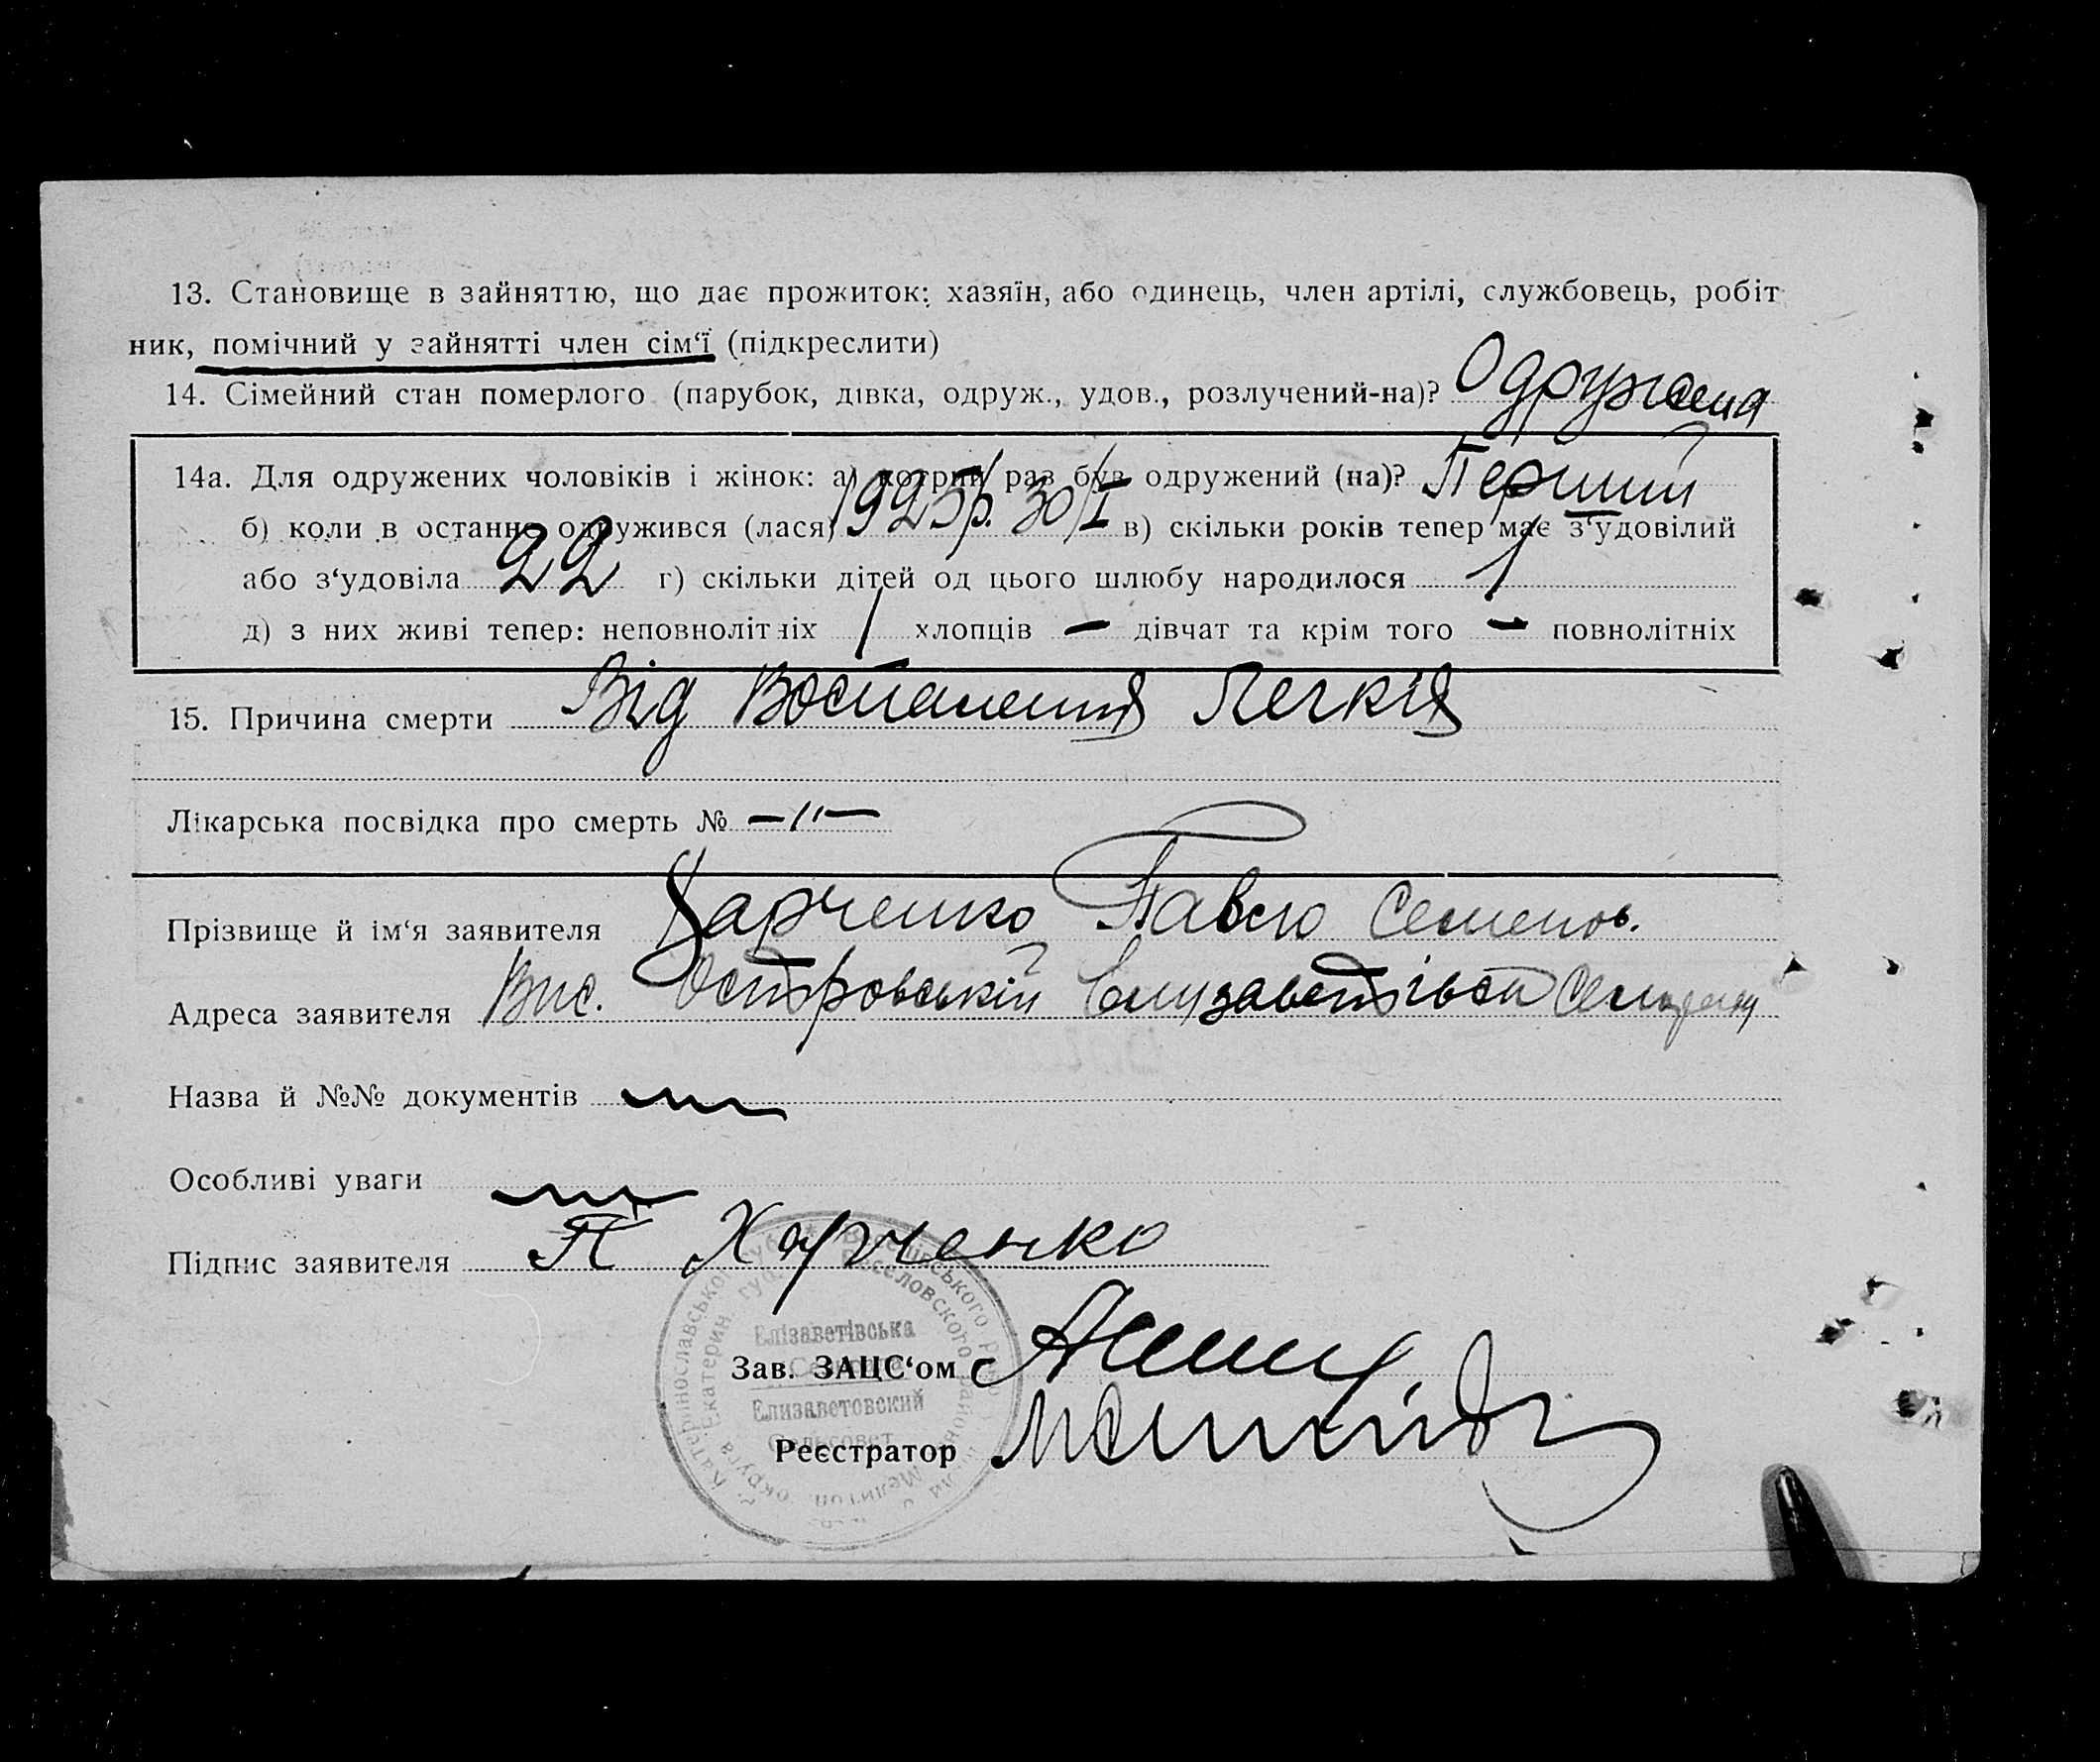 13. Становище в зайняттю, що дає прожиток: хазяїн, або одинець, член артілі, службовець, робіт
ник, помічний у зайнятті член сім‘ї (підкреслити)
14. Сімейний стан померлого (парубок, дівка, одруж., удов., розлучений-на)? Одружена
14а. Для одружених чоловіків і жінок: а) котрий раз був одружений (на)? Перший
б) коли в останнє одружився (лася) 1925р. 30/I в) скільки років тепер має з‘удовілий
або з‘удовіла 22 г) скільки дітей од цього шлюбу народилося 1
д) з них живі тепер: неповнолітніх 1 хлопців — дівчат та крім того — повнолітніх
15. Причина смерти Від Воспаления Легкія
Лікарська посвідка про смерть № —"—
Прізвище й ім‘я заявителя Харченко Павло Семенов.
Адреса заявителя Вис. Островський Єлизаветівск
Назва й №№ документів
Особливі уваги
Підпис заявителя П Харченко
Елізаветівська
Зав. ЗАЦС‘ом
Елизаветовский
Сельсовет
Реєстратор